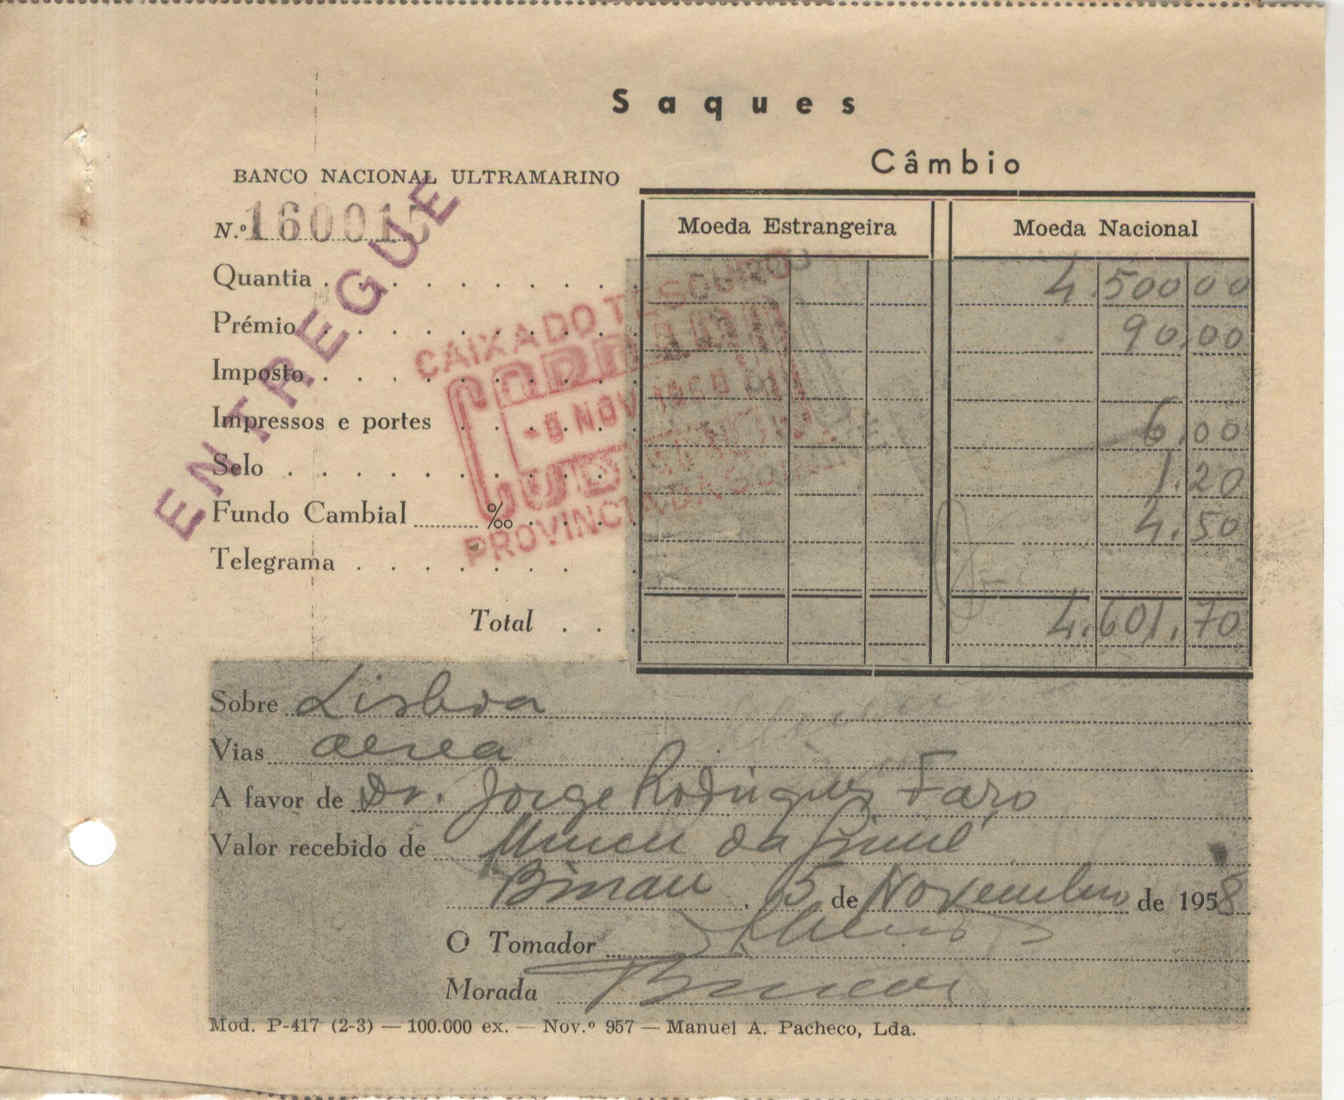 Saques
Câmbio
BANCO NACIONAL ULTRAMARINO
Moeda Estrangeira Moeda Nacional
N.º 16001
ENTREGUE
Quantia 4.500,00
Prémio 90,00
Imposto
Impressos e portes 6,00
Selo 1.20
Fundo Cambial ‰ 4.50
Telegrama
Total 4.601,70
CAIXA DO TESOURO
NOV
PROVINCIA DA GUINÉ
Sobre Lisboa
Vias aerea
A favor de Dr. Jorge Rodrigues Faro
Valor recebido de Museu da Guiné
Bissau, 5 de Novembro de 1958
O Tomador
Morada Bissau
Mod. P-417 (2-3) — 100.000 ex. — Nov.º 957 — Manuel A. Pacheco, Lda.